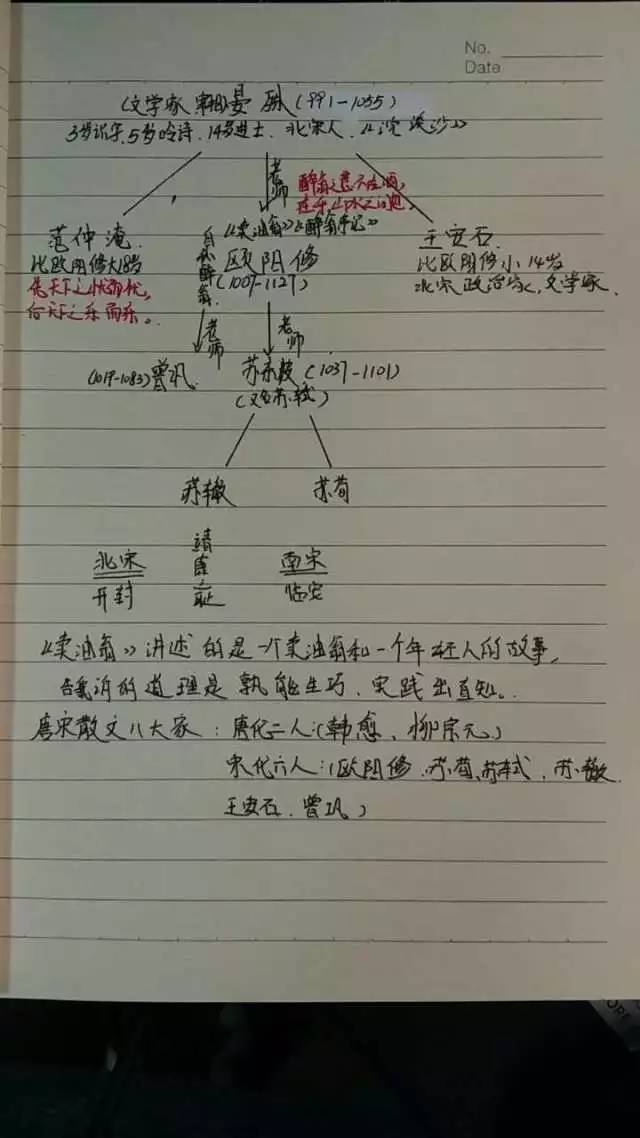 No.
Date
(文学家 宰相)晏殊(991-1055)
3岁识字,5岁吟诗,14岁进士.北宋人.《浣溪沙》
老师
醉翁之意不在酒,
在乎山水之间.
《卖油翁》《醉翁亭记》
范仲淹.
自称醉翁
欧阳修
王安石.
比欧阳修大18岁
(1007-1127)
比欧阳修小14岁
先天下之忧而忧,
后天下之乐而乐。
北宋政治家,文学家.
老师
老师
(1019-1083)曾巩.
苏东坡(1037-1101)
(又名苏轼)
苏辙
苏荀
北宋
靖康之耻
南宋
开封
临安
《卖油翁》讲述的是一个卖油翁和一个年轻人的故事,
告诉的道理是熟能生巧,实践出真知。
唐宋散文八大家:唐代二人:(韩愈、柳宗元)
宋代六人:(欧阳修.苏荀、苏轼.苏辙
王安石.曾巩)